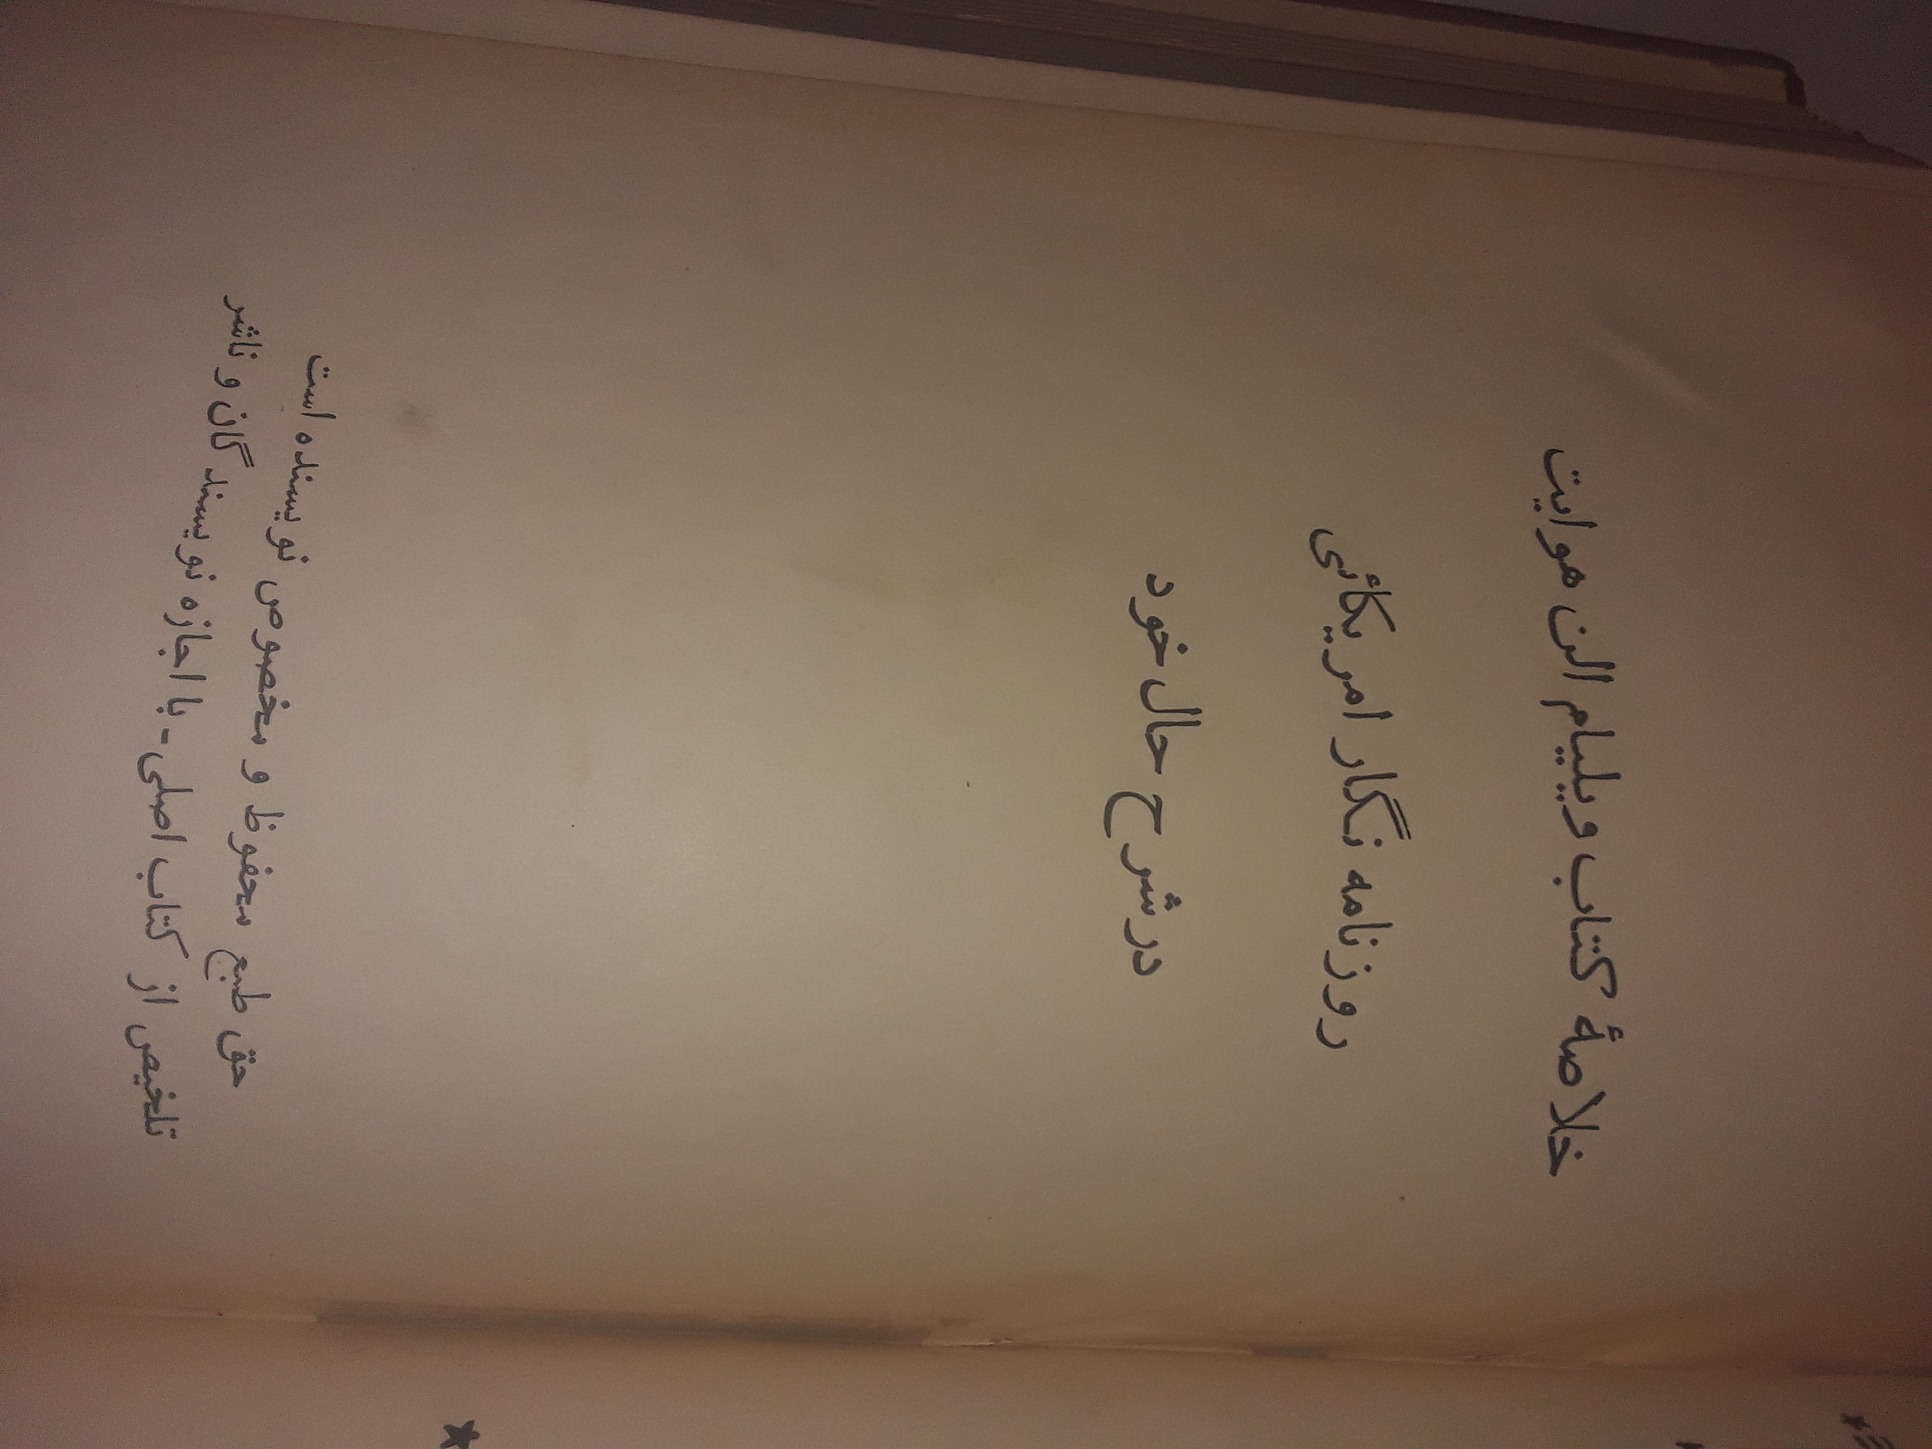 خلاصهٔ کتاب ویلیام الن هوایت
روزنامه نگار امریکائی
در شرح حال خود
حق طبع محفوظ و مخصوص نویسنده است
تلخیص از کتاب اصلی - با اجازه نویسندگان و ناشر